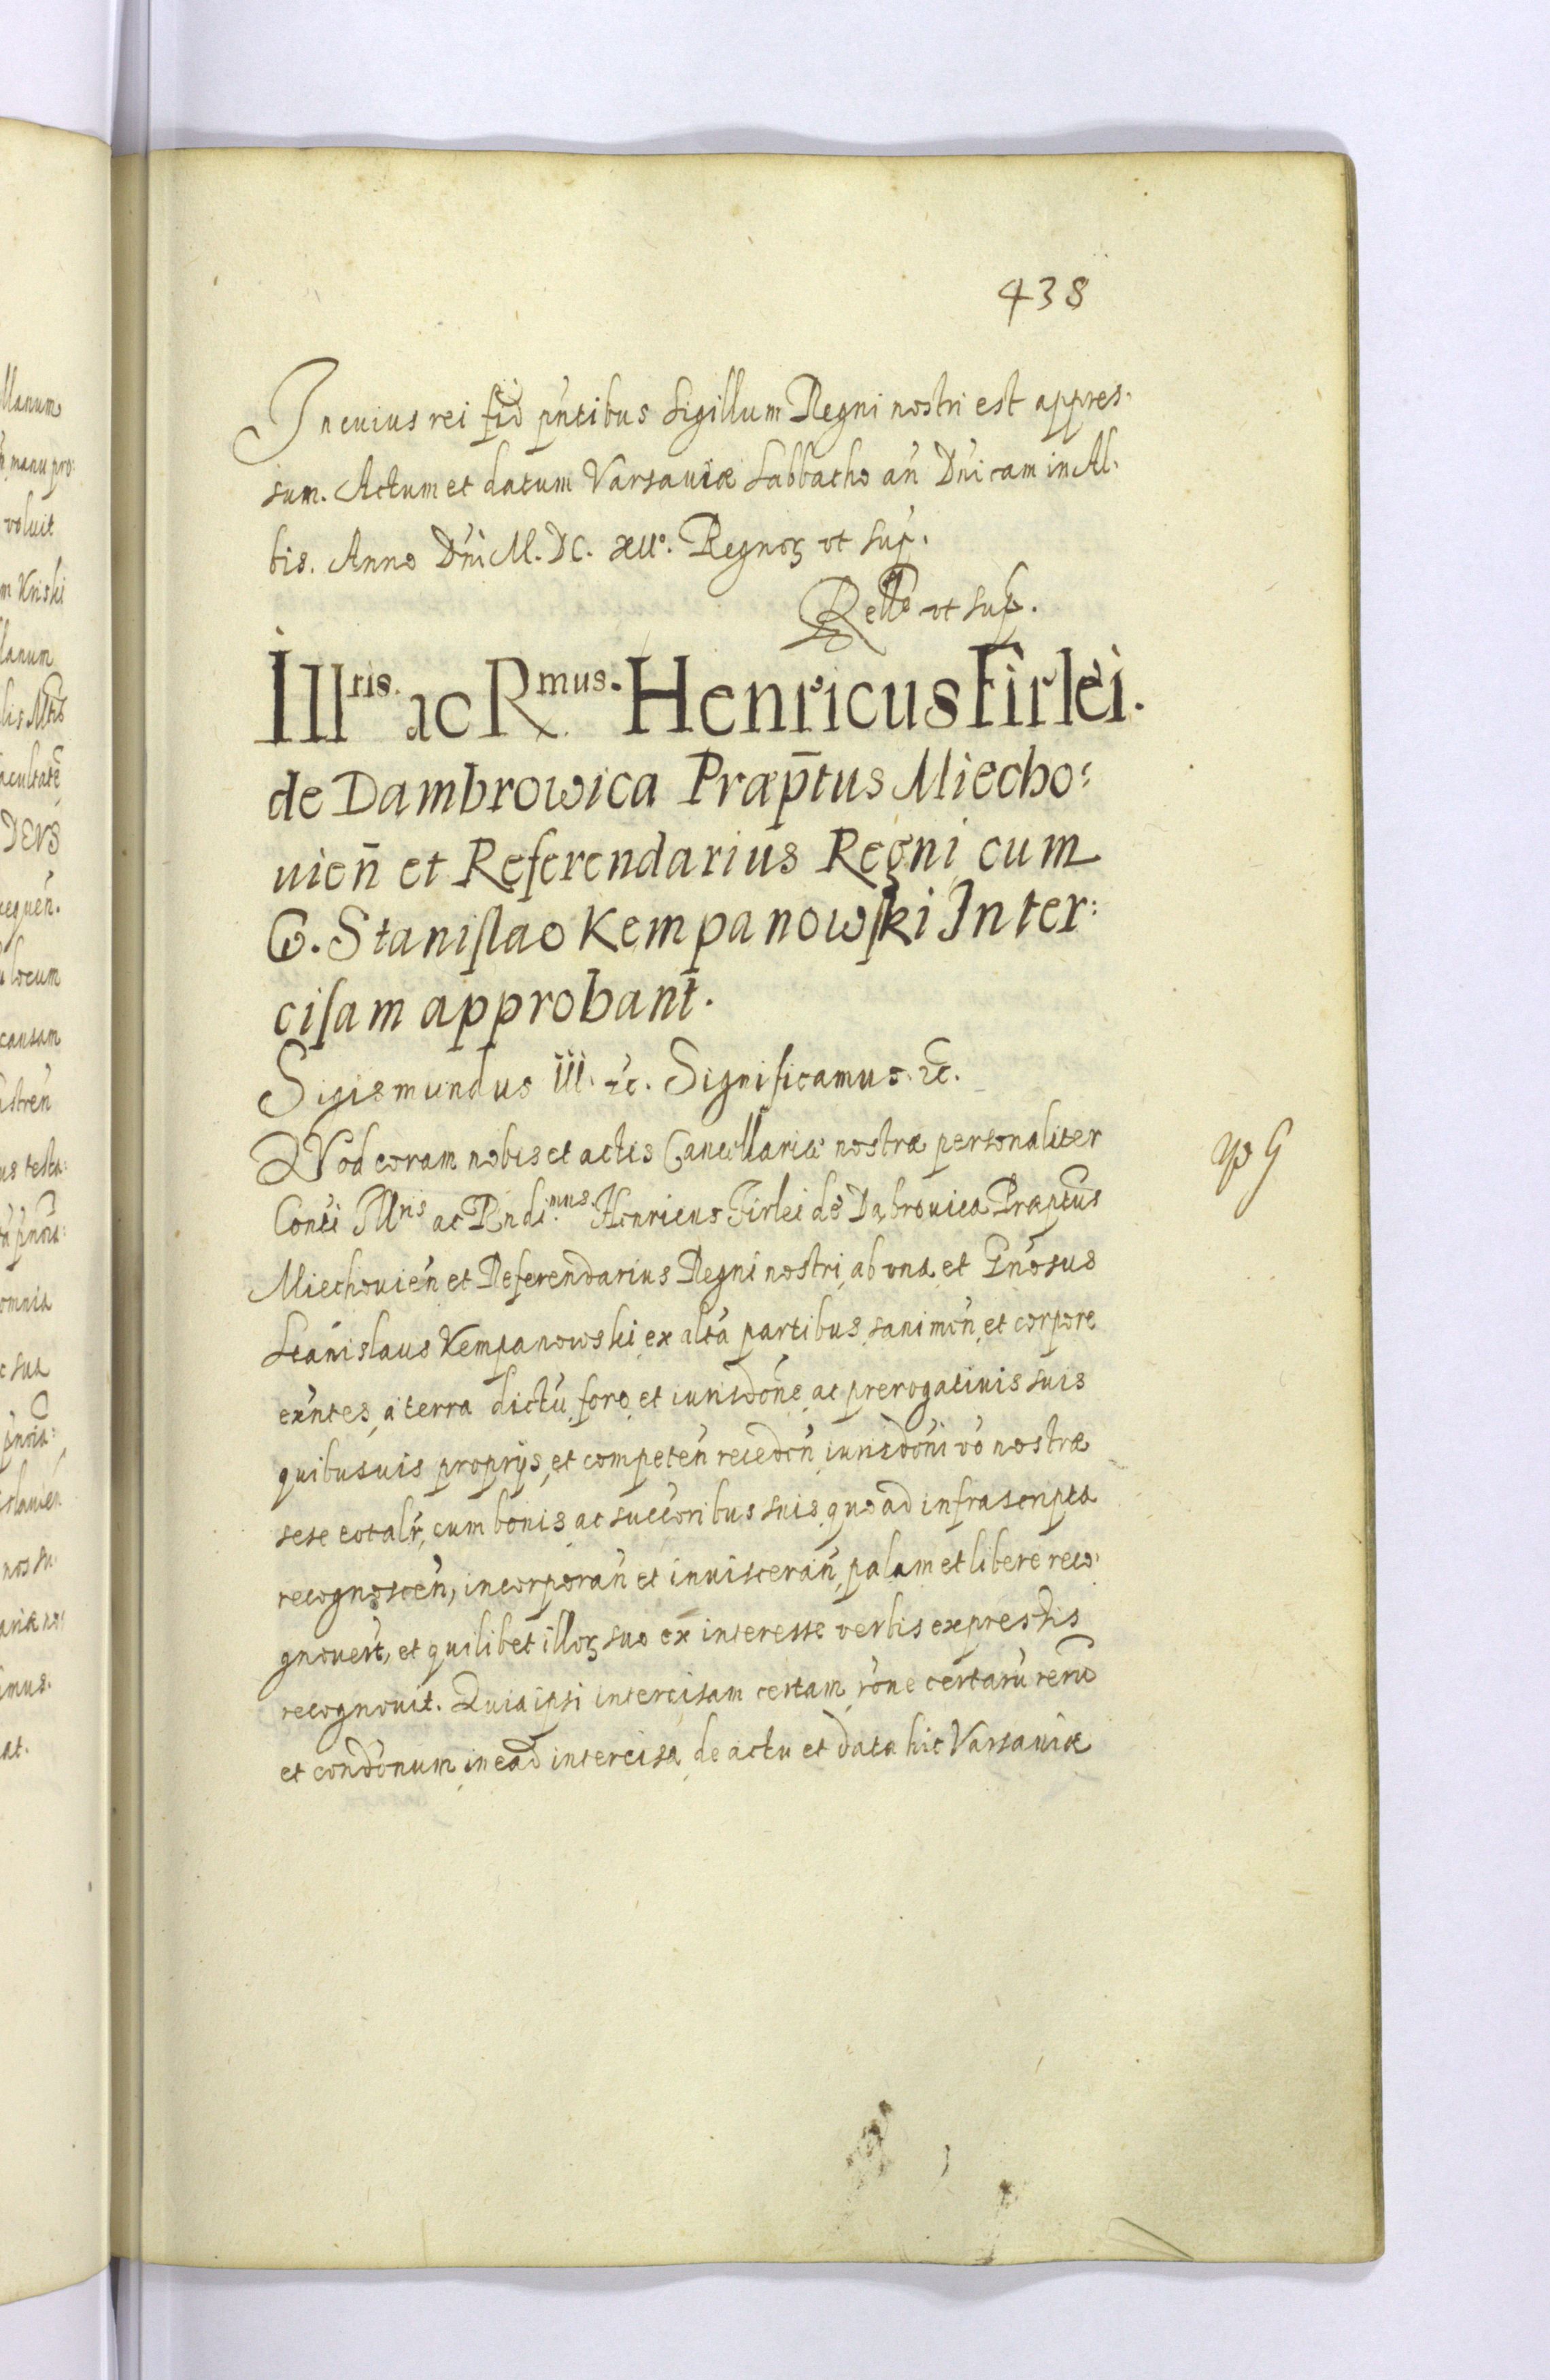 438
In cuius rei fid pñtibus Sigillum Regni nostri est appres-
sum. Actum et datum Varsauiæ Sabbatho añ Dñicam in Al-
bis. Anno Dñi M. DC. Regnoꝝ vt sup.
Rello vt sup.
Illris. ac Rmus. Henricus Firlei.
de Dambrowica Præp̄tus Miecho:
uien̄ et Referendarius Regni cum
G. Stanislao Kempanowski Inter:
cisam approbant̄.
Sigismundus III. &c. Significamus &c.
QVod coram nobis et actis Cancellariæ nostræ personaliter
Conti Illris ac Rndimus. Henricus Firlei de Dąbrouica Præptus
Miechouień et Referendarius Regni nostri, ab vna et Gñosus
Stanislaus Kempanowski ex altá partibus, sani moñ, et corpore
exñtes, á terra dictú foro, et iurisdoñe, ac prerogatiuis suis
quibusuis proprijs, et competeñ recedoñ, iurisdoñi vó nostræ
sese totalr, cum bonis, ac succoribus suis, quo ad infrascripta
recognosceñ, incorporañ et inuisceran̄, palam et libere reco-
gnouert, et quilibet illoꝝ suo ex interesse verbis expressis
recognouit. Quia ipsi intercisam certam, róne certarú rerú
et condonum, in ead intercisá, de actu et data hic Varsauiæ